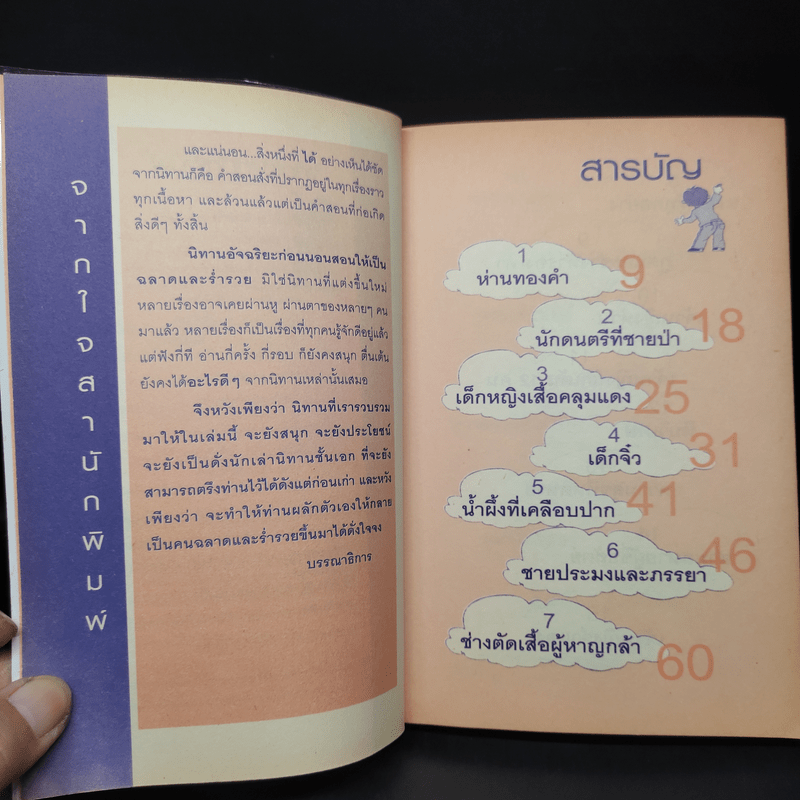 จากใจสำนักพิมพ์
และแน่นอน...สิ่งหนึ่งที่ ได้ อย่างเห็นได้ชัด
จากนิทานก็คือ คำสอนสั่งที่ปรากฏอยู่ในทุกเรื่องราว
ทุกเนื้อหา และล้วนแล้วแต่เป็นคำสอนที่ก่อเกิด
สิ่งดีๆ ทั้งสิ้น
นิทานอัจฉริยะก่อนนอนสอนให้เป็น
ฉลาดและร่ำรวย มิใช่นิทานที่แต่งขึ้นใหม่
หลายเรื่องอาจเคยผ่านหู ผ่านตาของหลายๆ คน
มาแล้ว หลายเรื่องก็เป็นเรื่องที่ทุกคนรู้จักดีอยู่แล้ว
แต่ฟังกี่ที อ่านกี่ครั้ง กี่รอบ ก็ยังคงสนุก ตื่นเต้น
ยังคงได้อะไรดีๆ จากนิทานเหล่านั้นเสมอ
จึงหวังเพียงว่า นิทานที่เรารวบรวม
มาให้ในเล่มนี้ จะยังสนุก จะยังประโยชน์
จะยังเป็นดั่งนักเล่านิทานชั้นเอก ที่จะยัง
สามารถตรึงท่านไว้ได้ดังแต่ก่อนเก่า และหวัง
เพียงว่า จะทำให้ท่านผลักตัวเองให้กลาย
เป็นคนฉลาดและร่ำรวยขึ้นมาได้ดั่งใจจง
บรรณาธิการ
สารบัญ
1
ห่านทองคำ 9
2
นักดนตรีที่ชายป่า 18
3
เด็กหญิงเสื้อคลุมแดง 25
4
เด็กจิ๋ว 31
5
น้ำผึ้งที่เคลือบปาก 41
6
ชายประมงและภรรยา 46
7
ช่างตัดเสื้อผู้หาญกล้า 60